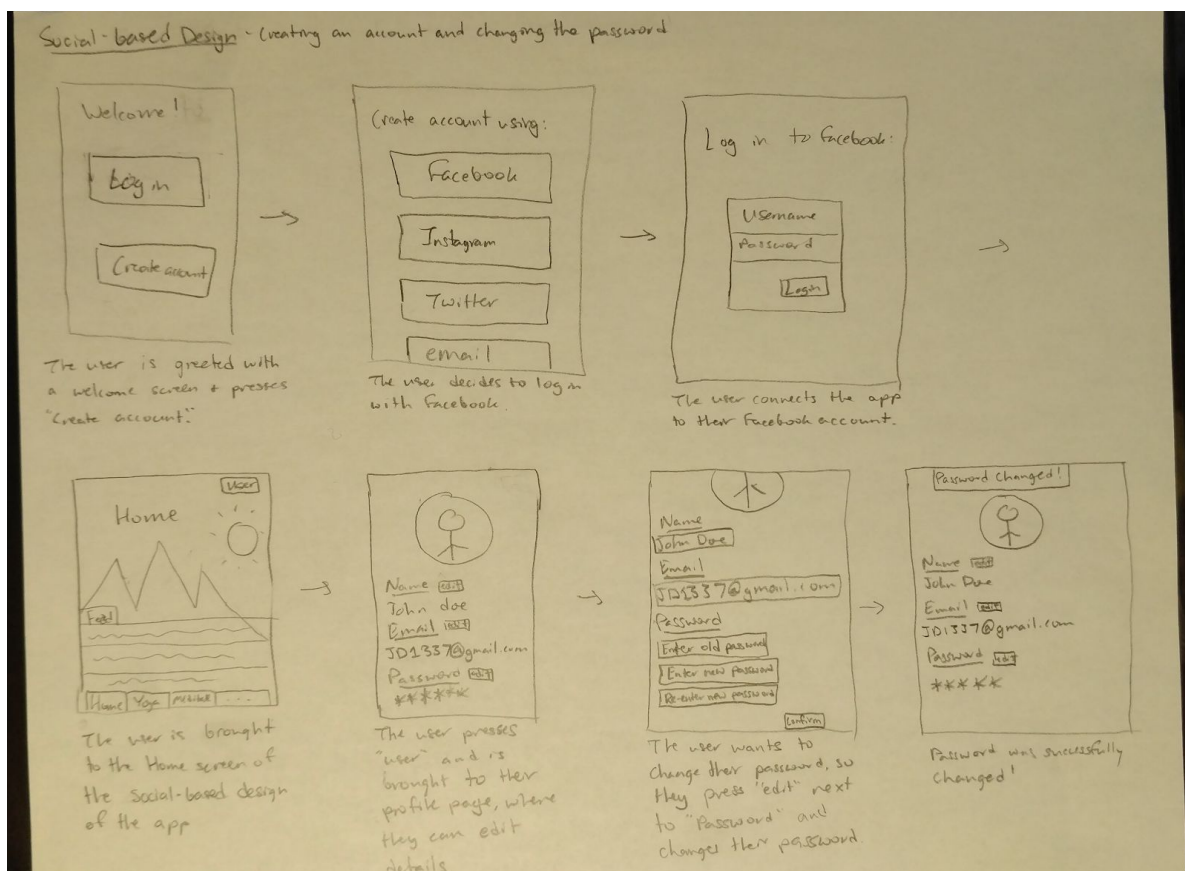 Social-based Design - Creating an account and changing the password
Welcome!
Log in
Create account
The user is greeted with
a welcome screen + presses
"Create account."
Create account using:
Facebook
Instagram
Twitter
email
The user decides to log in
with Facebook.
Log in to Facebook:
Username
Password
Login
The user connects the app
to their Facebook account.
User
Home
Feed
Home Yoga ...
The user is brought
to the Home screen of
the Social-based design
of the app
Name edit
John doe
Email edit
JD1337@gmail.com
Password edit
******
The user presses
"user" and is
brought to their
profile page, where
they can edit
details
Name
John Doe
Email
JD1337@gmail.com
Password
Enter old password
Enter new password
Re-enter new password
Confirm
The user wants to
change their password, so
they press "edit" next
to "Password" and
changes their password.
Password Changed!
Name edit
John Doe
Email edit
JD1337@gmail.com
Password edit
*****
Password was successfully
changed!